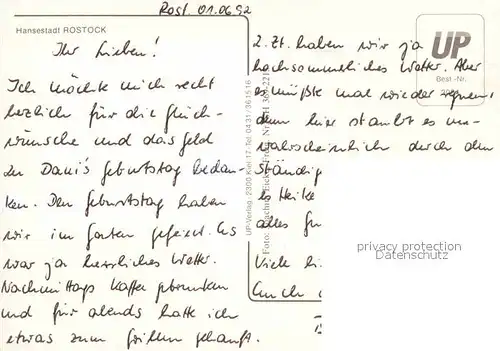 Rost. 01.06.92
Hansestadt ROSTOCK
Ihr Lieben!
Ich möchte mich recht
herzlich für die Glück-
wünsche und das Geld
zu Dani's Geburtstag bedan-
ken. Den Geburtstag haben
wir im Garten gefeiert. Es
war ja herrliches Wetter.
Nachmittags Kaffee getrunken
und für abends hatte ich
etwas zum Grillen gekauft.
UP-Verlag, 2300 Kiel 17 · Tel. 0431/361516
Z. Zt. haben wir ja
hochsommerliches Wetter. Aber
es müßte mal wieder regnen,
denn hier staubt es un-
wahrscheinlich durch den
ständige
es Heike
alles Gu
Viele li
Euch
UP
Best.-Nr.
privacy protection
Datenschutz